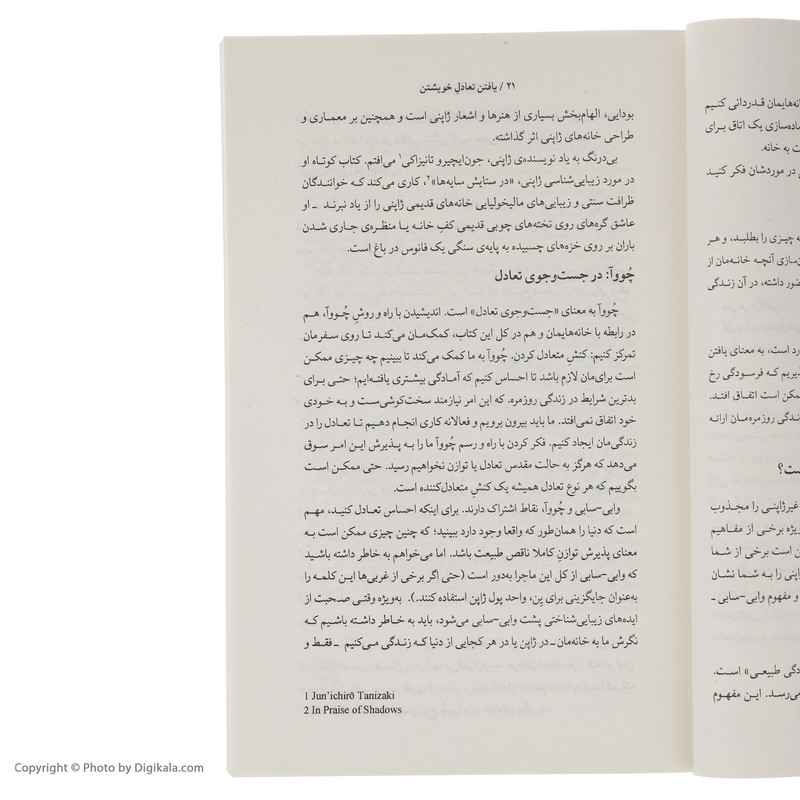 ۲۱ / یافتن تعادلِ خویشتن
بودایی، الهام‌بخش بسیاری از هنرها و اشعار ژاپنی است و همچنین بر معماری و
طراحی خانه‌های ژاپنی اثر گذاشته.
بی‌درنگ به یاد نویسنده‌ی ژاپنی، جون‌ایچیرو تانیزاکی۱ می‌افتم. کتاب کوتاه او
در مورد زیبایی‌شناسی ژاپنی، «در ستایش سایه‌ها»۲، کاری می‌کند که خوانندگان
ظرافت سنتی و زیبایی‌های مالیخولیایی خانه‌های قدیمی ژاپنی را از یاد نبرند ـ او
عاشق گره‌های روی تخته‌های چوبی قدیمی کفِ خانه یا منظره‌ی جاری شدن
باران بر روی خزه‌های چسبیده به پایه‌ی سنگی یک فانوس در باغ است.
چُووآ: در جست‌وجوی تعادل
چُووآ به معنای «جست‌وجوی تعادل» است. اندیشیدن با راه و روشِ چُووآ، هم
در رابطه با خانه‌هایمان و هم در کل این کتاب، کمک‌مان می‌کند تا روی سفرمان
تمرکز کنیم: کنشِ متعادل کردن. چُووآ به ما کمک می‌کند تا ببینیم چه چیزی ممکن
است برای‌مان لازم باشد تا احساس کنیم که آمادگی بیشتری یافته‌ایم؛ حتی برای
بدترین شرایط در زندگی روزمره. که این امر نیازمند سخت‌کوشی‌ست و به خودی
خود اتفاق نمی‌افتد. ما باید بیرون برویم و فعالانه کاری انجام دهیم تا تعادل را در
زندگی‌مان ایجاد کنیم. فکر کردن با راه و رسم چُووآ ما را به پذیرش این امر سوق
می‌دهد که هرگز به حالت مقدس تعادل یا توازن نخواهیم رسید. حتی ممکن است
بگوییم که هر نوع تعادل همیشه یک کنشِ متعادل‌کننده است.
وابی-سابی و چُووآ، نقاط اشتراک دارند. برای اینکه احساس تعادل کنید، مهم
است که دنیا را همان‌طور که واقعا وجود دارد ببینید؛ که چنین چیزی ممکن است به
معنای پذیرش توازنِ کاملا ناقص طبیعت باشد. اما می‌خواهم به خاطر داشته باشید
که وابی-سابی از کل این ماجرا به‌دور است (حتی اگر برخی از غربی‌ها این کلمه را
به‌عنوان جایگزینی برای یِن، واحد پول ژاپن استفاده کنند.). به‌ویژه وقتی صحبت از
ایده‌های زیبایی‌شناختی پشت وابی-سابی می‌شود، باید به خاطر داشته باشیم که
نگرش ما به خانه‌مان ـ در ژاپن یا در هر کجایی از دنیا که زندگی می‌کنیم ـ فقط و
1 Jun’ichirō Tanizaki
2 In Praise of Shadows
انه‌هایمان قدردانی کنیم
ماده‌سازی یک اتاق برای
ت به خانه.
در موردشان فکر کنید
ه چیزی را بطلبد، و هر
ن‌سازی آنچه خانه‌مان از
ضور داشته، در آن زندگی
رد است، به معنای یافتن
ذیریم که فرسودگی رخ
مکن است اتفاق افتد.
ندگی روزمره‌مان ارائه
ست؟
غیرژاپنی را مجذوب
یژه برخی از مفاهیم
ن است برخی از شما
اپنی را به شما نشان
و مفهوم وابی-سابی ـ
دگی طبیعی» است.
می‌رسد. این مفهوم
Copyright © Photo by Digikala.com